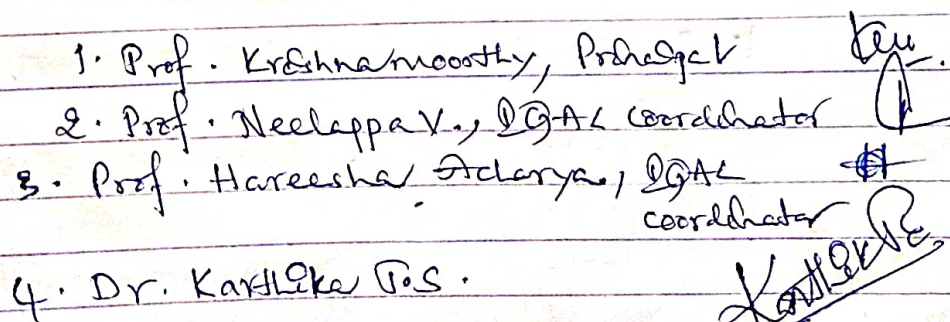 1. Prof. Krishnamoorthy, Principal
2. Prof. Neelappa V., IQAC coordinator
3. Prof. Hareesha Acharya, IQAC
coordinator
4. Dr. Karthika P.S.
Karthik P.S